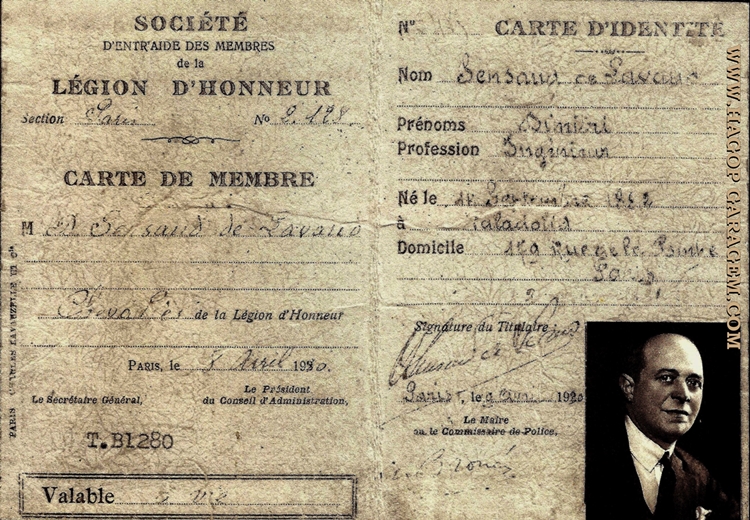 SOCIÉTÉ
D'ENTR'AIDE DES MEMBRES
de la
LÉGION D'HONNEUR
Section Paris No 2.128
CARTE DE MEMBRE
M D Sensaud de Lavaud
Chevalier de la Légion d'Honneur
PARIS, le Avril 1930.
Le Secrétaire Général,
Le Président
du Conseil d'Administration,
T.B1280
Valable a vie
PARIS CHARLES LAVAUZELLE ET Cie
N° CARTE D'IDENTITÉ
Nom Sensaud de Lavaud
Prénoms Dimitri
Profession Ingénieur
Né le 14 Septembre 1882
à Valadolid
Domicile 179 Rue de la Pompe
Paris
Signature du Titulaire :
Paris, le 1930
Le Maire
ou le Commissaire de Police,
WWW.HAGOP GARAGEM.COM